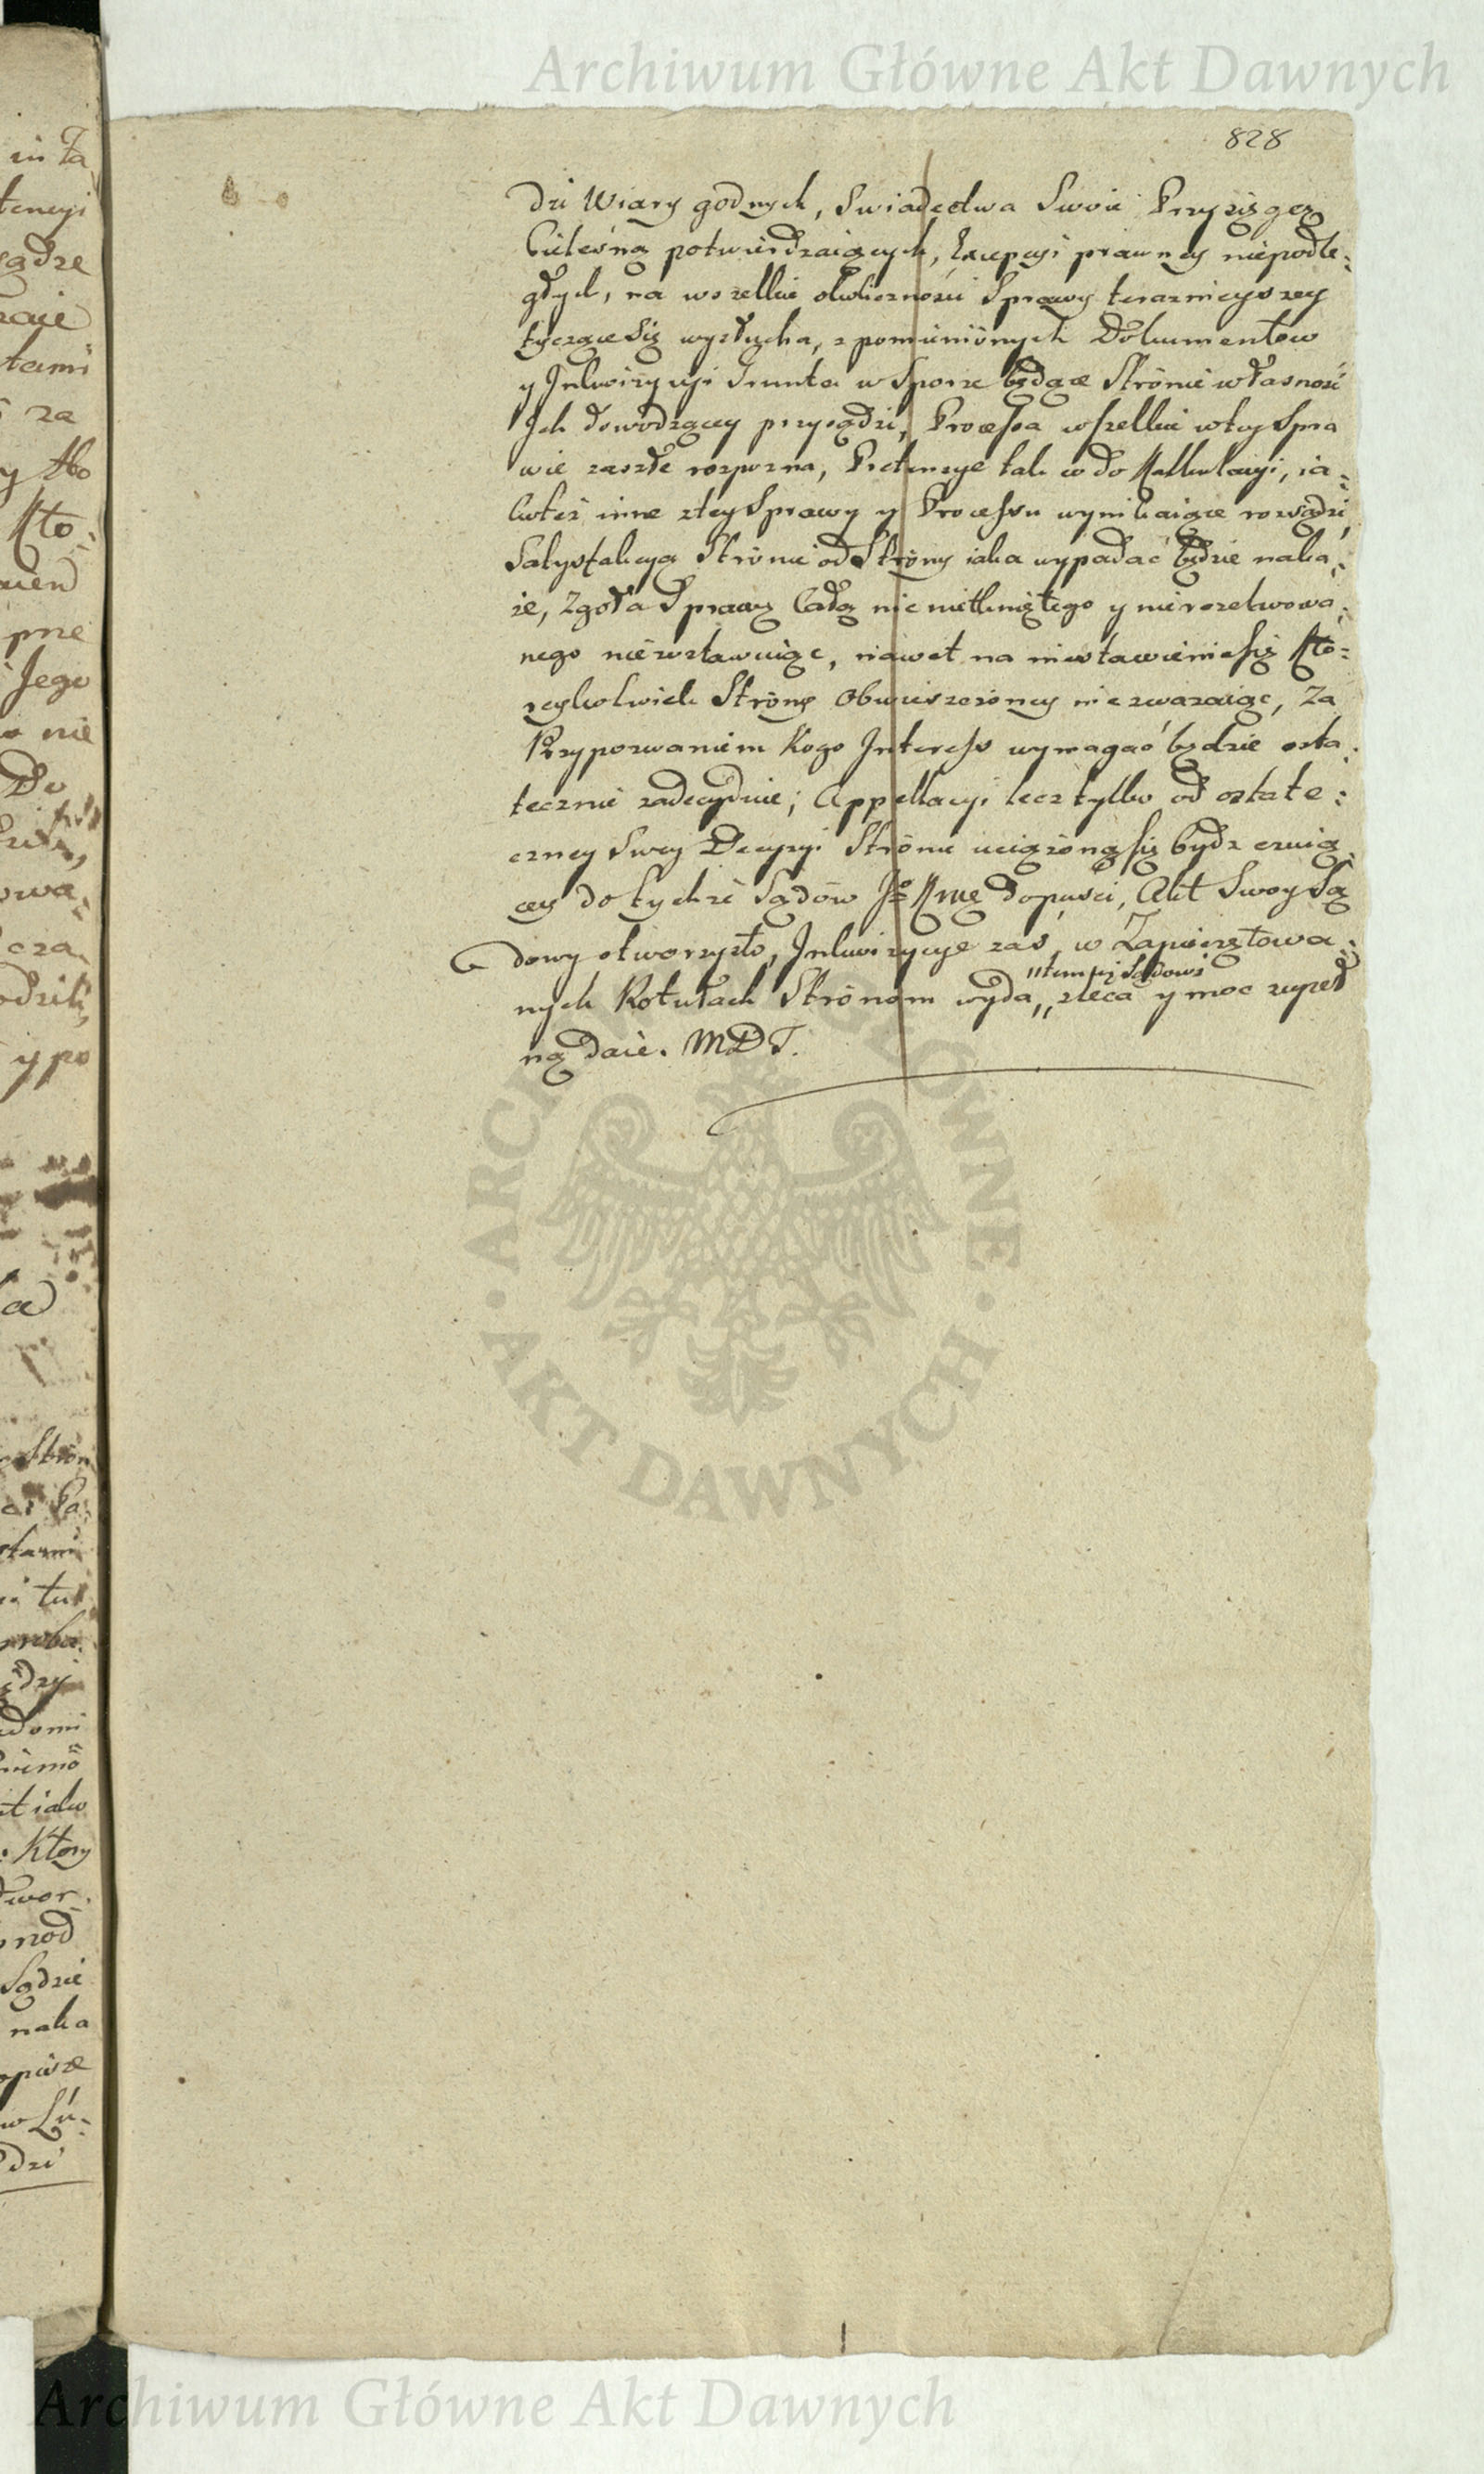 Archiwum Główne Akt Dawnych
828
dzi Wiary godnych, Swiadectwa Swoie Przysięgą
Cielesną potwierdzaiących, Excepcyi prawney niepodle=
głych, na wszelkie okoliczności Sprawy teraznieyszey
tyczące się wysłucha, z pomienionych Dokumentow
y Inkwizycyi Grunta w Sporze będące Stronie własność
Ich dowodzącey przysądzi, Processa wszelkie wtey Spra
wie zaszłe rozpozna, Pretensye tak co do Kalkulacyi, ia=
koteż inne ztey Sprawy y Processu wynikaiące rozsądzi,
Satysfakcyą Stronie od Strony iaka wypadać będzie naka=
że, Zgoła Sprawę Całą nic nietkniętego y nierozetwowa=
nego niezostawuiąc, nawet na niestawienie się Kto=
reykolwiek Strony Obwieszczoney nie zwazaiąc, Za
Przypozwaniem Kogo Interess wymagać będzie osta=
tecznie zadecyduie; Appellacyi lecz tylko od ostate=
czney Swey Decyzyi Stronie uciążoną się bydz czuią
cey do tychże Sądow JKMci dopuści, Akt Swoy Są
dowy otworzysto, Inkwizycye zaś w Zapieczętowa=
nych Rotułach Stronom wyda,, zleca y moc zupeł
,,temuż Sądowi
ną daie. MDT.
in Ta
tencyi
sądze
tami
za
Kto=
prze
Jego
nie
Do
y po
Ktory
nod
Sądzie
naka
opisze
w Lu=
dzi
ARCHIWUM GŁÓWNE · AKT DAWNYCH ·
Archiwum Główne Akt Dawnych